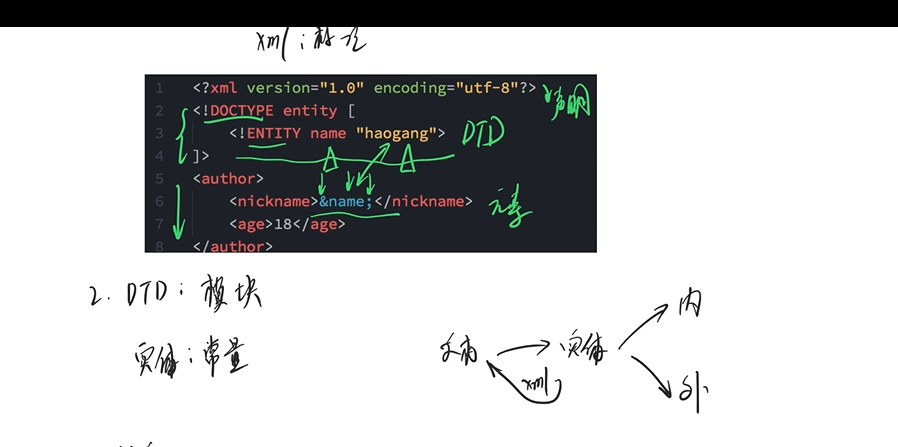 xml：标记
1 <?xml version="1.0" encoding="utf-8"?> 声明
2 <!DOCTYPE entity [
3 <!ENTITY name "haogang"> DTD
4 ]>
5 <author>
6 <nickname>&name;</nickname> 元素
7 <age>18</age>
8 </author>
2. DTD：模块
内
实体：常量
实体
xml
外